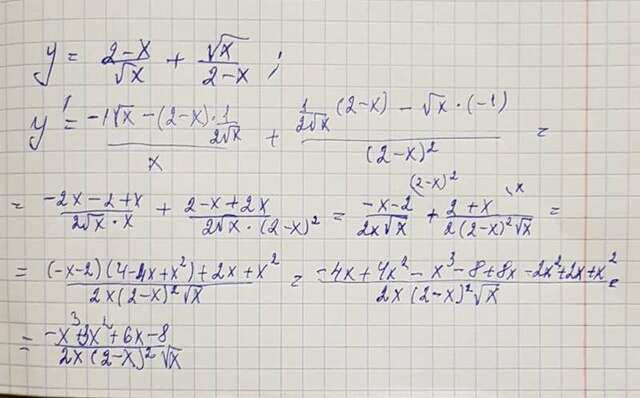 y = (2-x)/√x + √x/(2-x) ;
y' = (-1√x - (2-x)·1/(2√x))/x + (1/(2√x) (2-x) - √x·(-1))/(2-x)² =
= (-2x-2+x)/(2√x·x) + (2-x+2x)/(2√x·(2-x)²) = (-x-2)/(2x√x) ⁽⁽²⁻ˣ⁾²⁾ + (2+x)/(2(2-x)²√x) ⁽ˣ⁾ =
= ((-x-2)(4-4x+x²)+2x+x²)/(2x(2-x)²√x) = (-4x+4x²-x³-8+8x-2x²+2x+x²)/(2x(2-x)²√x) =
= (-x³+3x²+6x-8)/(2x(2-x)²√x)